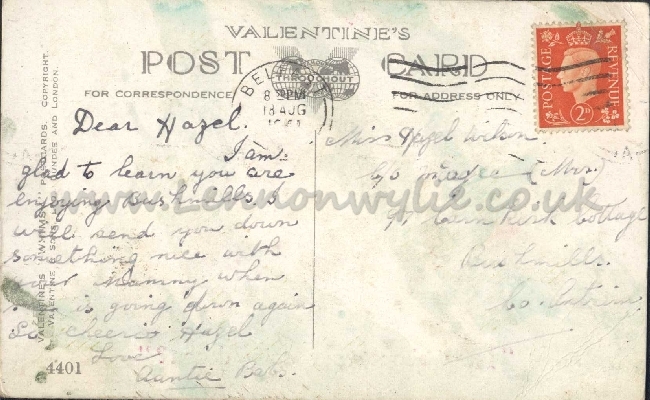 VALENTINE'S
POST CARD
THROUGHOUT
FOR CORRESPONDENCE
FOR ADDRESS ONLY
8 PM
18 AUG
POSTAGE REVENUE
2D
Dear Hazel.
I am
glad to learn you are
enjoying Bushmills. I
will send you down
something nice with
your Mammy when
she is going down again
So cheerio Hazel
Love
Auntie Babs.
Miss Hazel Wilson
c/o (Mrs)
Cottage
Bushmills.
Co. Antrim
VALENTINE & SONS LTD. DUNDEE AND LONDON.
POSTCARDS. COPYRIGHT.
4401
www.Lennonwylie.co.uk